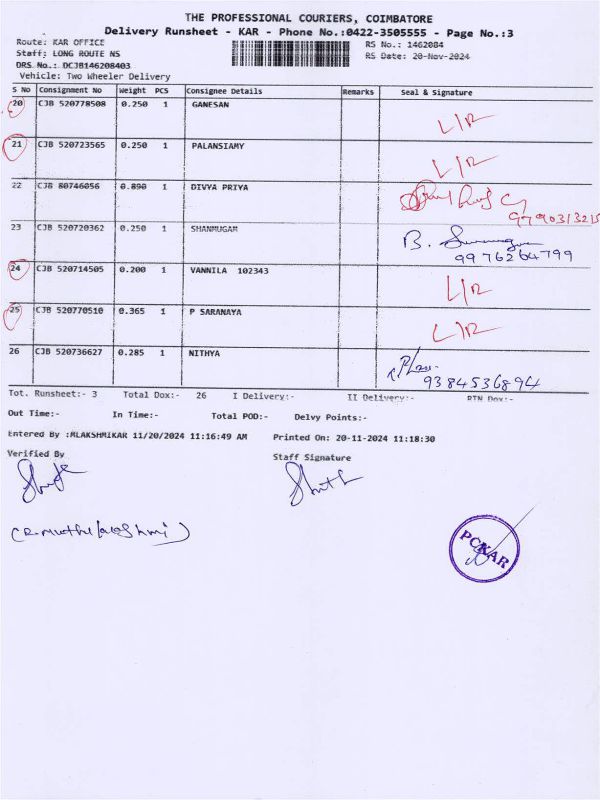 THE PROFESSIONAL COURIERS, COIMBATORE
Delivery Runsheet - KAR - Phone No.:0422-3505555 - Page No.:3
Route: KAR OFFICE RS No.: 1462084
Staff: LONG ROUTE NS RS Date: 20-Nov-2024
DRS No.: DCJB146208403
Vehicle: Two Wheeler Delivery
S No Consignment No Weight PCS Consignee Details Remarks Seal & Signature
20 CJB 520778508 0.250 1 GANESAN L/R
21 CJB 520723565 0.250 1 PALANSIAMY L/R
22 CJB 80746056 0.890 1 DIVYA PRIYA
9790313215
23 CJB 520720362 0.250 1 SHANMUGAM B.
9976264799
24 CJB 520714505 0.200 1 VANNILA 102343 L/R
25 CJB 520770510 0.365 1 P SARANAYA L/R
26 CJB 520736627 0.285 1 NITHYA
9384536894
Tot. Runsheet:- 3 Total Dox:- 26 I Delivery:- II Delivery:- RTN Dox:-
Out Time:- In Time:- Total POD:- Delvy Points:-
Entered By :MLAKSHMIKAR 11/20/2024 11:16:49 AM Printed On: 20-11-2024 11:18:30
Verified By Staff Signature
PCKAR